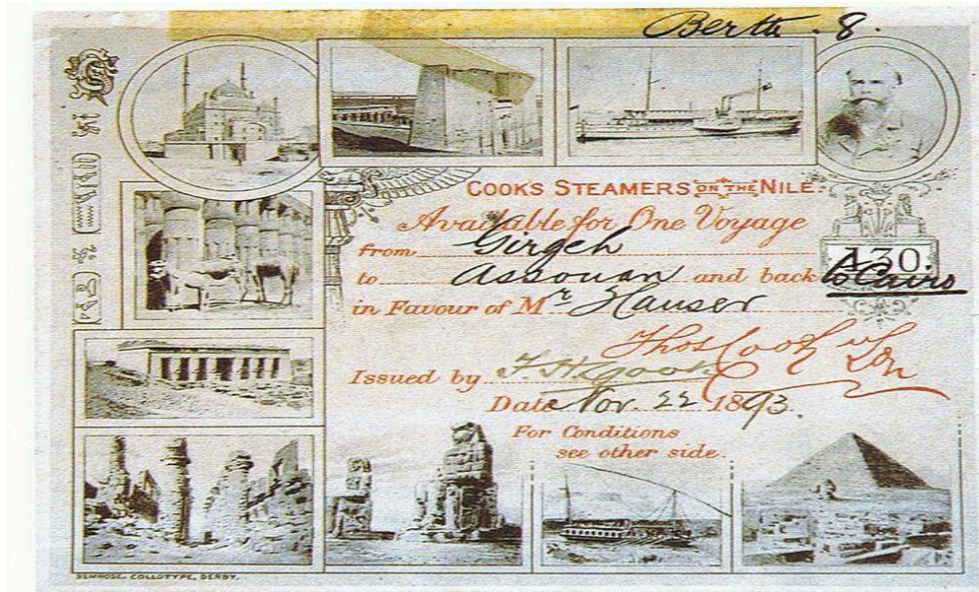 Berth . 8.
COOK'S STEAMERS ON THE NILE.
Available for One Voyage
from Girgeh
A30.
to Assouan and back to Cairo
in Favour of Mr Hauser
Thos Cook & Son
Issued by F. H. Cook
Date Nov. 22 1893.
For Conditions
see other side.
BEMROSE. COLLOTYPE, DERBY.